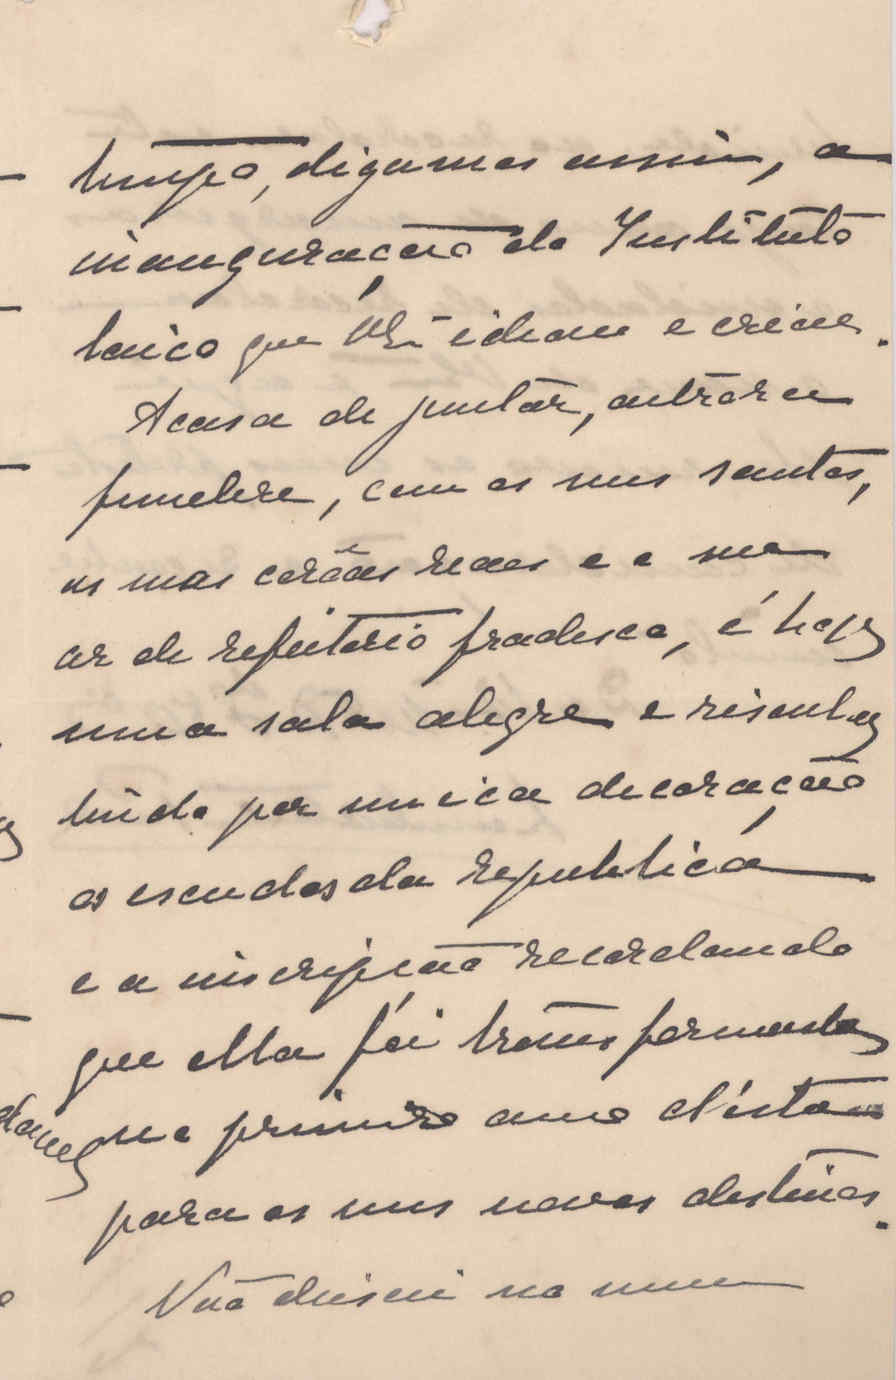 tempo, digamos assim, a
inauguração do Instituto
laico que V. Ex.ª ideou e criou.
A casa de jantar, outrora
funebre, com os seus santos,
as suas corôas reaes e o seu
ar de refeitorio fradesco, é hoje
uma sala alegre e risonha
tendo por unica decoração
os escudos da republica
e a inscripção recordando
que ella foi transformada
no primeiro anno d'esta
para os seus novos destinos.
Não deixei no meu